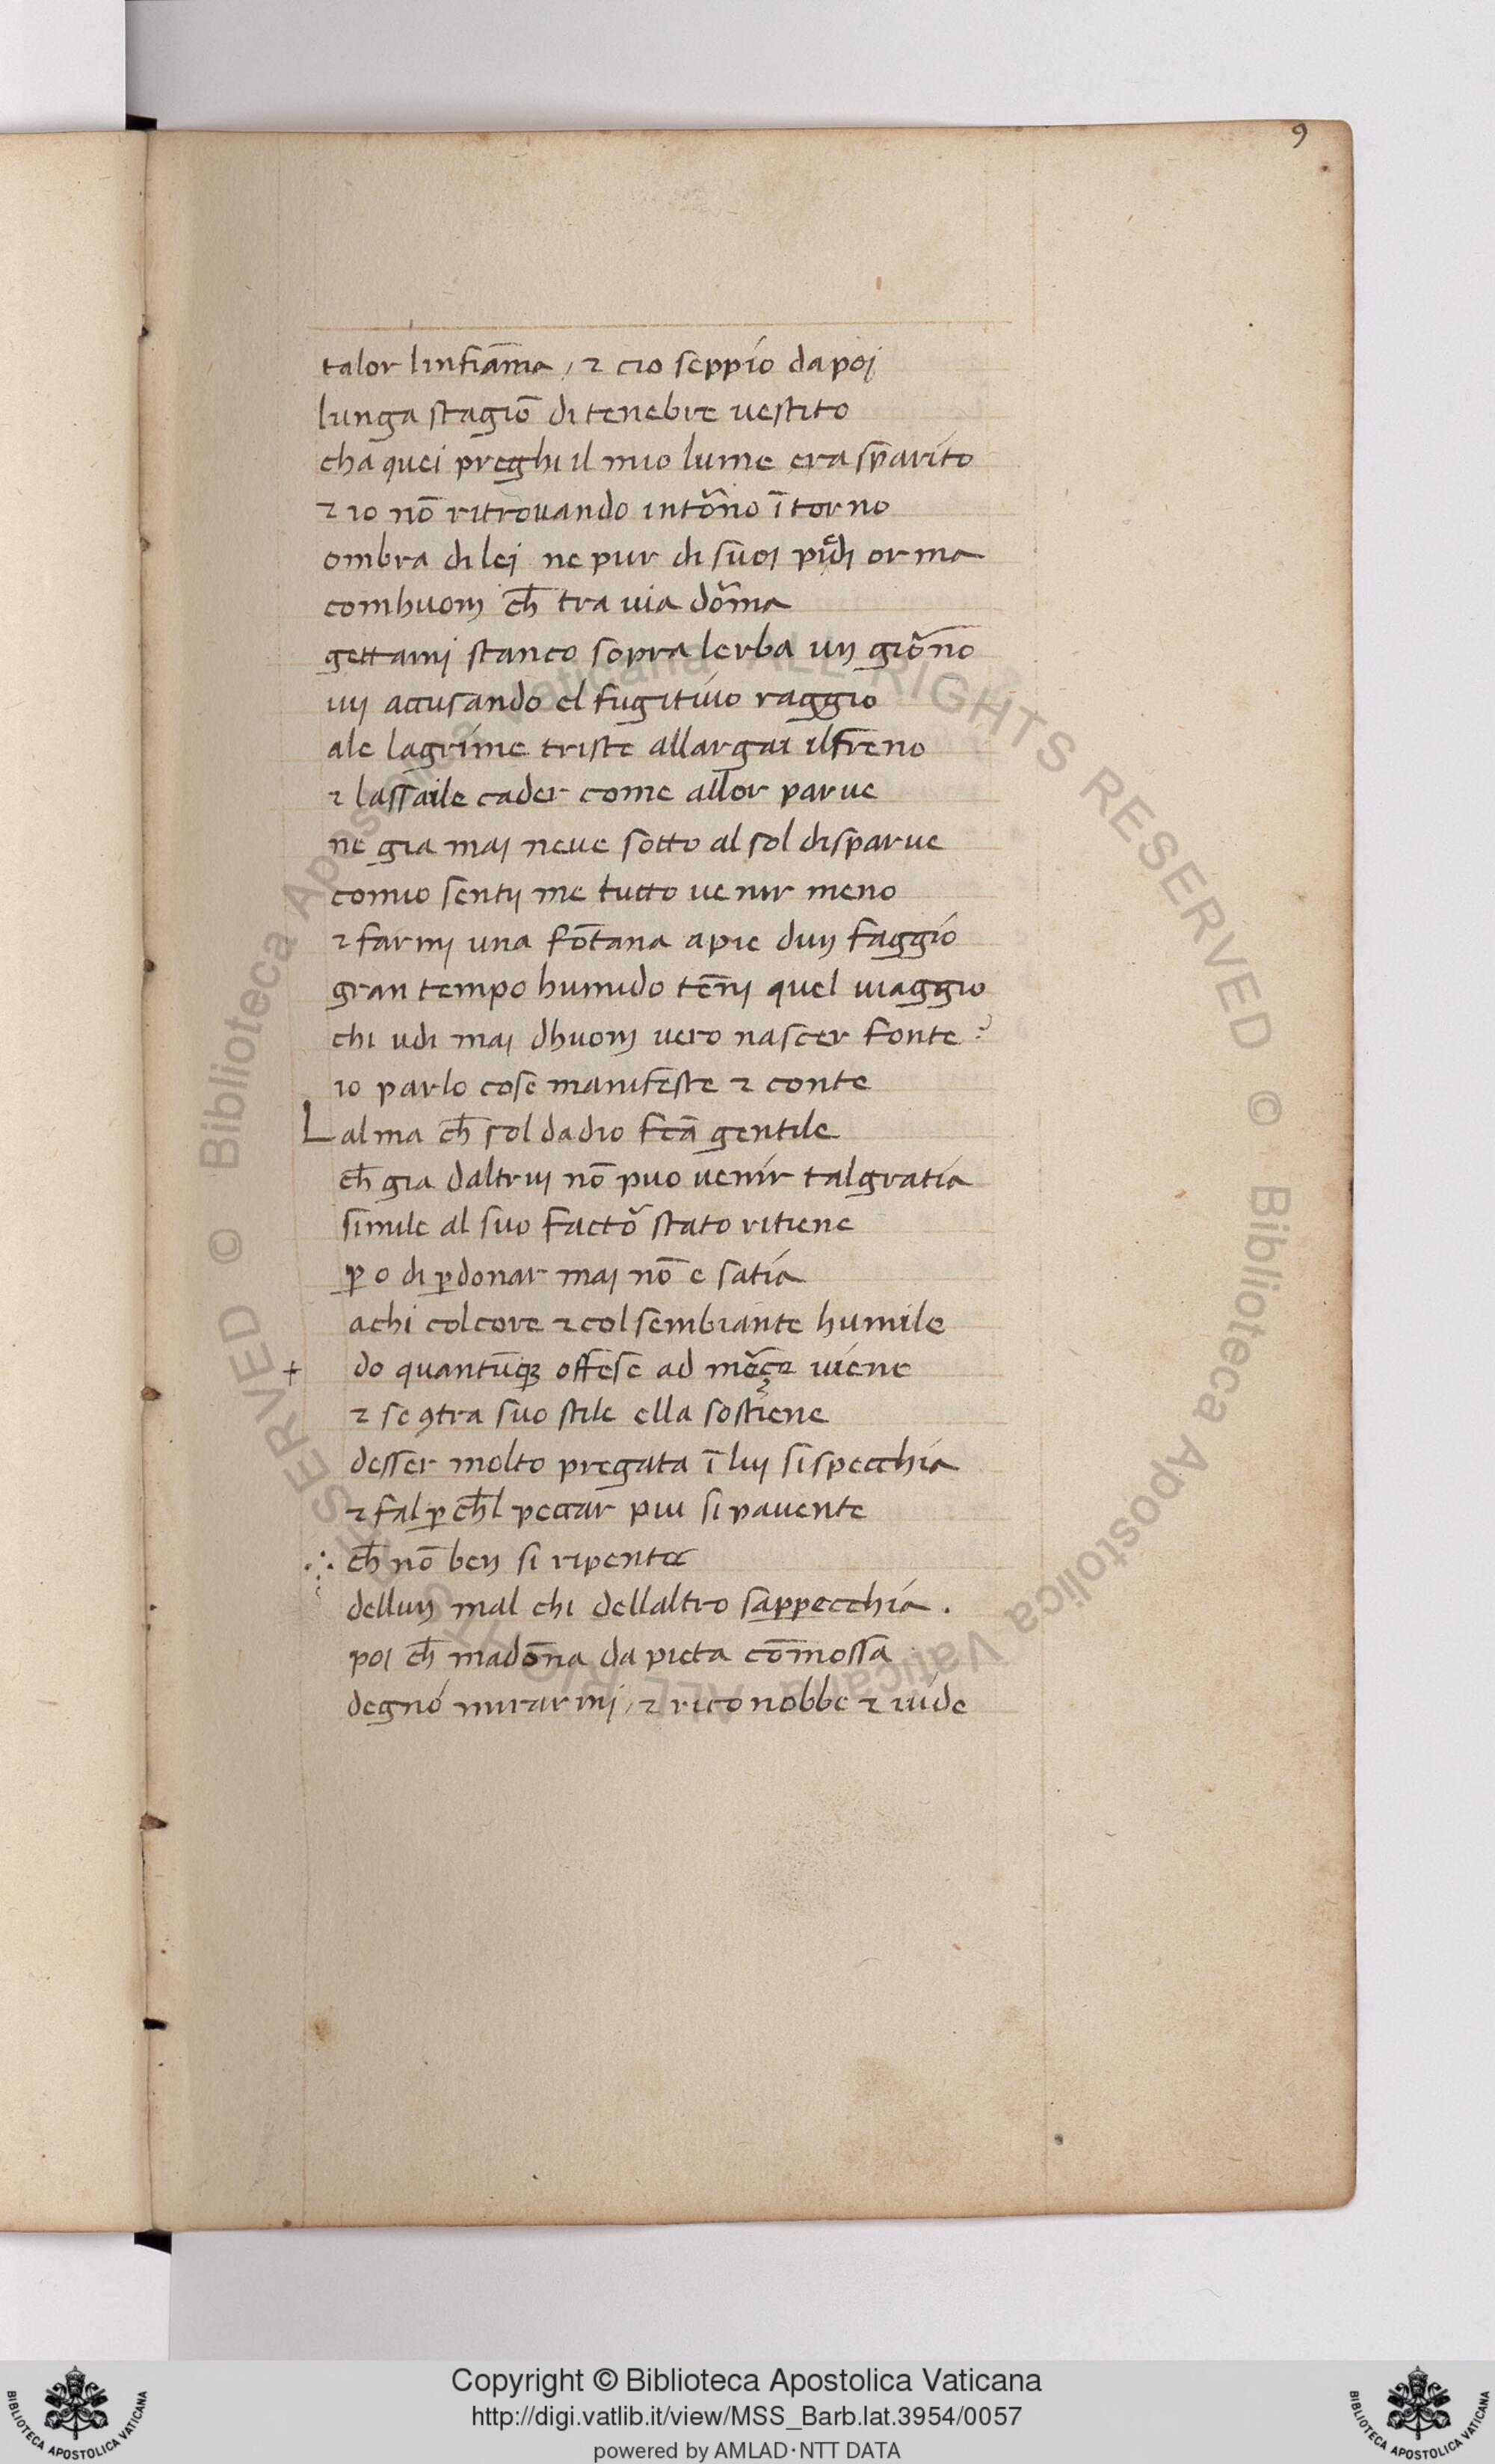 9
talor linfiāma / ⁊ cio seppio dapoi
lunga stagiō di tenebre uestito
cha quei preghi il mio lume era sp̄arito
⁊ io nō ritrouando intōrno ītorno
ombra di lej ne pur di suoi piedi orma
comhuom ch̄ tra uia dorma
gettami stanco sopra lerba un giorno
iui accusando el fugitiuo raggio
ale lagrime triste allargai ilfreno
⁊ lassaile cader come allor parue
ne gia mai neue sotto al sol disparue
comio sentij me tutto uenir meno
⁊ farmi una fōtana apie dun faggio
gran tempo humido tēni quel uiaggio
chi udi mai dhuom uero nascer fonte?
io parlo cose manifeste ⁊ conte
Lalma ch̄ sol dadio fc̄a gentile
ch̄ gia daltrui nō puo uenir talgratia
simile al suo factor stato ritiene
ꝑo di ꝑdonar mai nō e satia
achi colcore ⁊ col sembiante humile
+ do quantūq₃ offese ad merçe uiene
⁊ se ꝯtra suo stile ella sostiene
desser molto pregata ī lui si specchia
⁊ fal ꝑ ch̄l peccar piu si pauente
ch̄ nō ben si ripente
dellun mal chi dellaltro sappecchia.
poi ch̄ madōna da pieta cōmossa
degnò mirarmi / ⁊ riconobbe ⁊ uide
© Biblioteca Apostolica Vaticana ALL RIGHTS RESERVED
© Biblioteca Apostolica Vaticana ALL RIGHTS RESERVED
Copyright © Biblioteca Apostolica Vaticana
http://digi.vatlib.it/view/MSS_Barb.lat.3954/0057
powered by AMLAD·NTT DATA
BIBLIOTECA APOSTOLICA VATICANA
BIBLIOTECA APOSTOLICA VATICANA